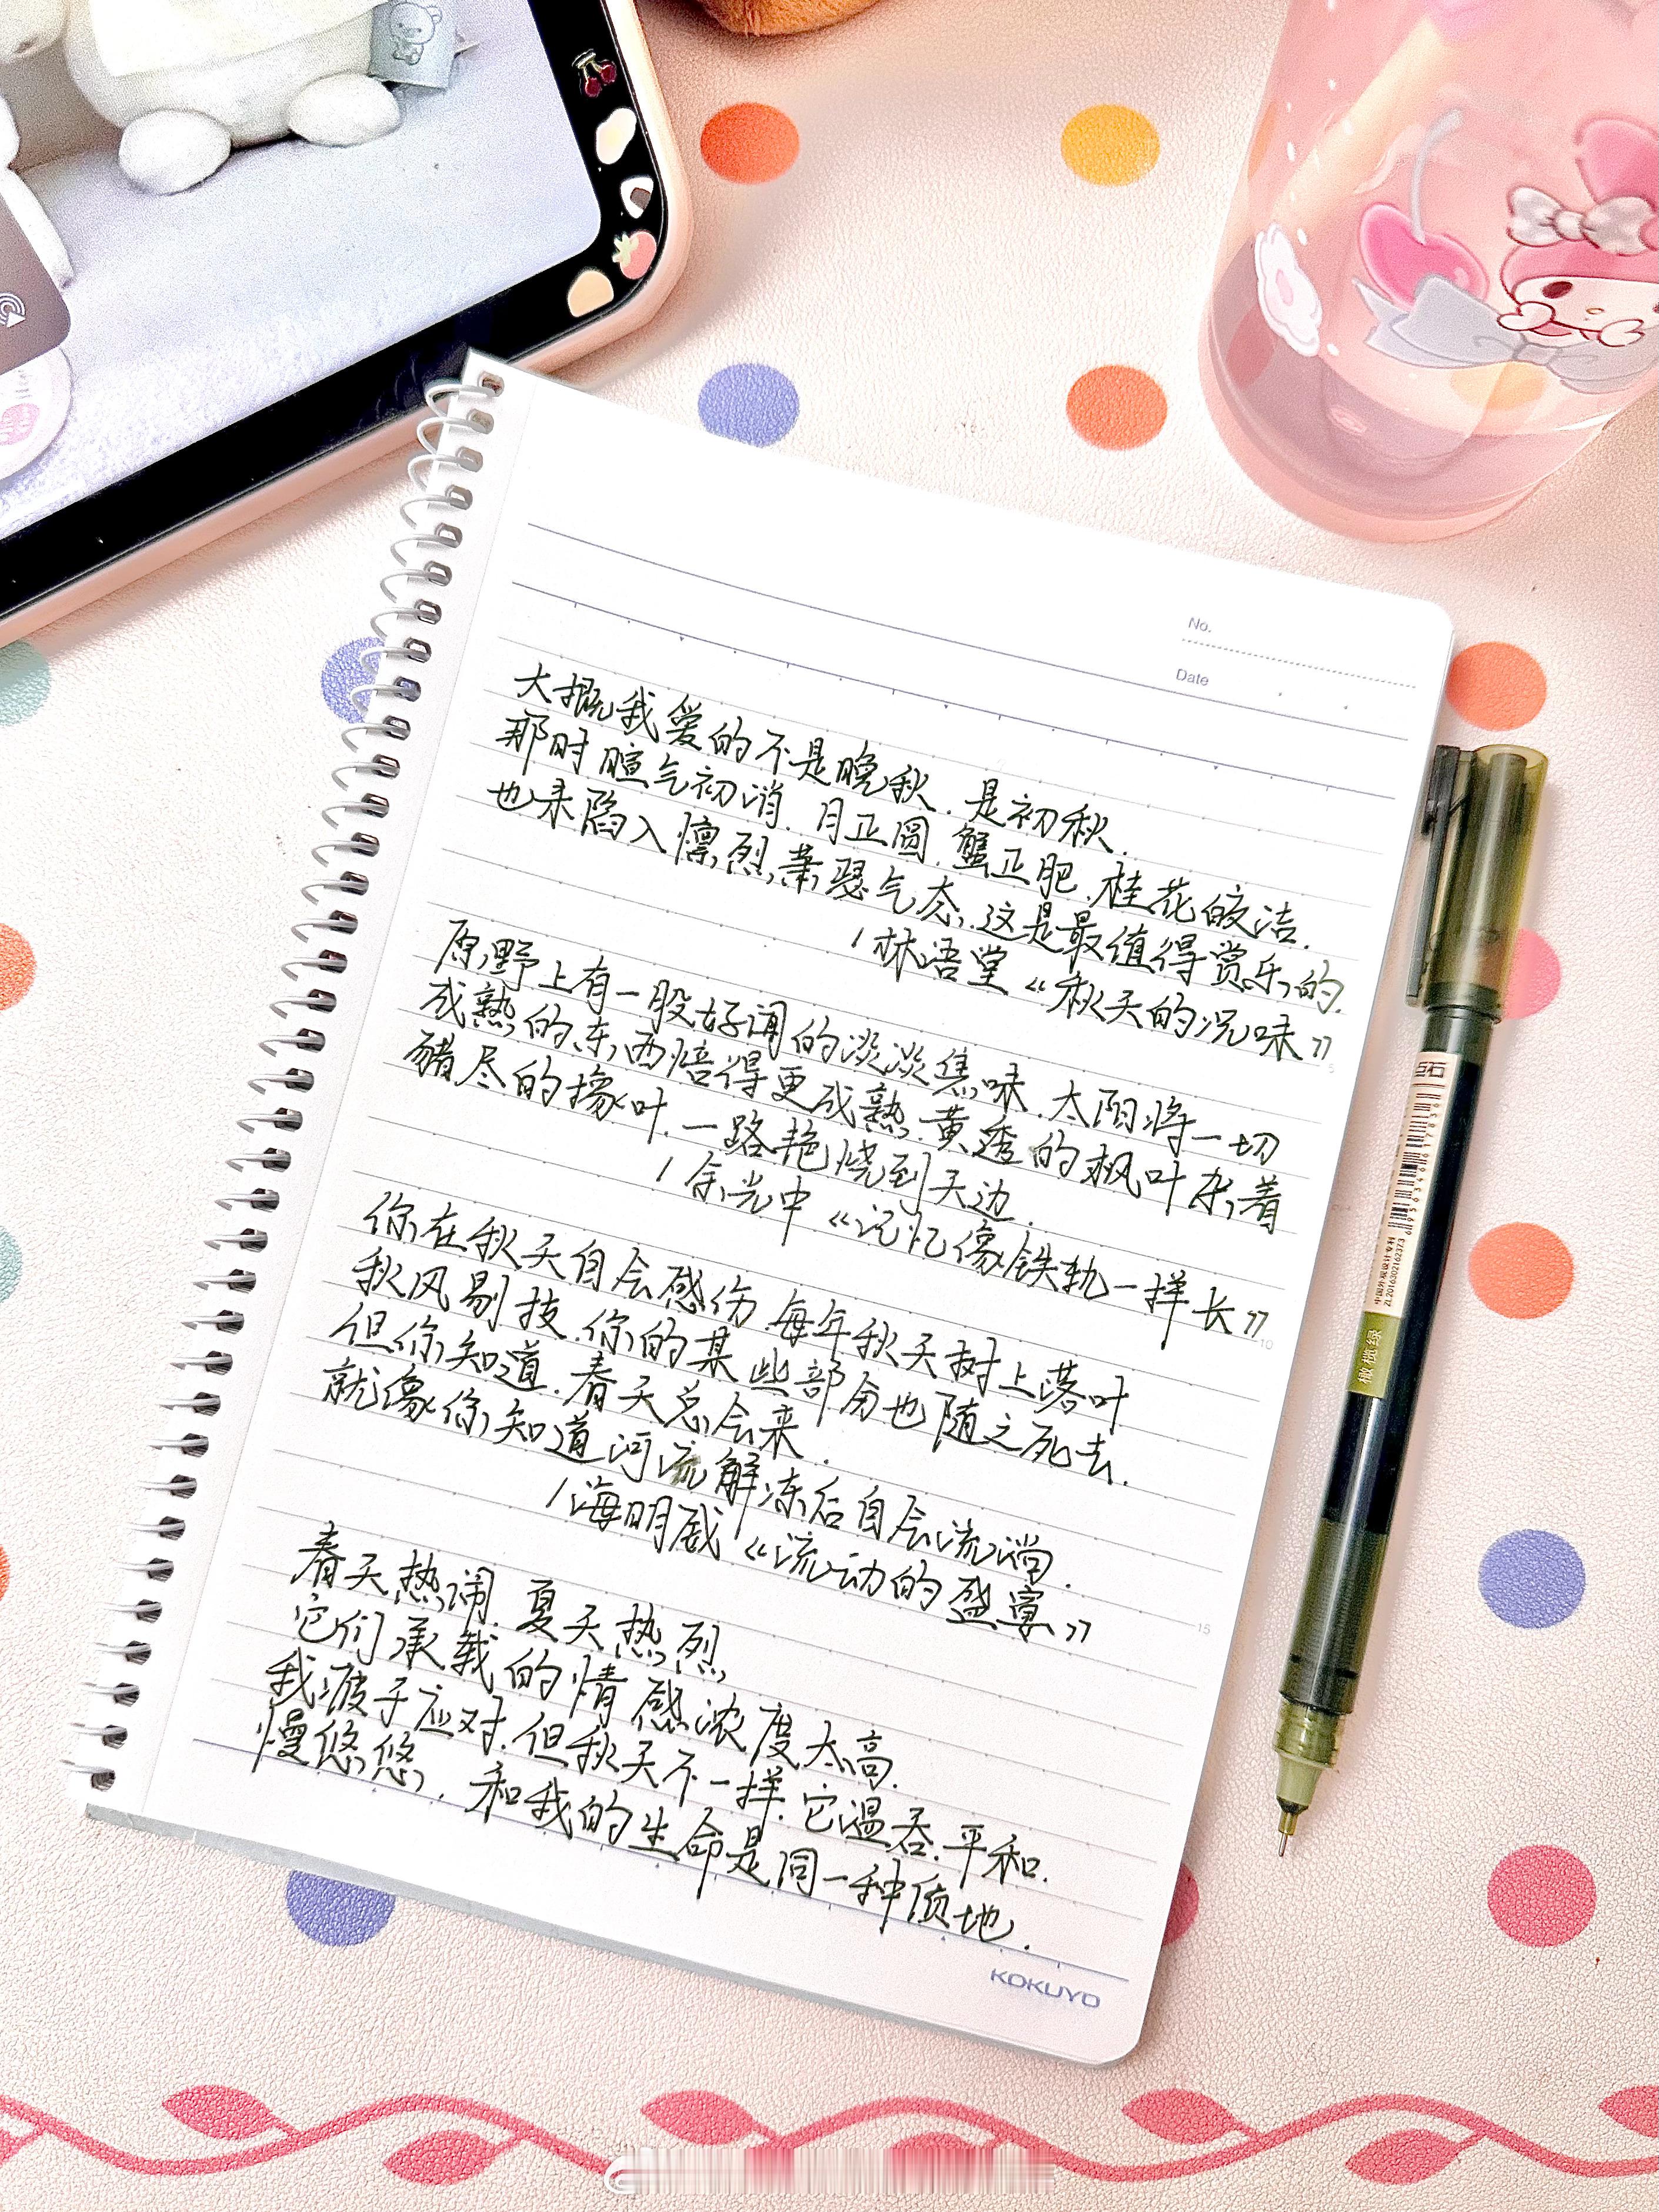 No.
Date
大概我爱的不是晚秋.是初秋.
那时暄气初消.月正圆.蟹正肥.桂花皎洁.
也未陷入懔烈萧瑟气态.这是最值得赏乐的.
/林语堂《秋天的况味》
原野上有一股好闻的淡淡焦味.太阳将一切
成熟的东西焙得更成熟.黄透的枫叶杂着
赭尽的橡叶.一路艳烧到天边.
/余光中《记忆像铁轨一样长》
你在秋天自会感伤.每年秋天树上落叶
秋风剔枝.你的某些部分也随之死去.
但你知道.春天总会来.
就像你知道河流解冻后自会流淌.
/海明威《流动的盛宴》
春天热闹.夏天热烈
它们承载的情感浓度太高.
我疲于应对.但秋天不一样.它温吞.平和.
慢悠悠.和我的生命是同一种质地.
5
10
15
KOKUYO
巨石
中国外观设计专利
ZL201630216237.3
橄榄绿